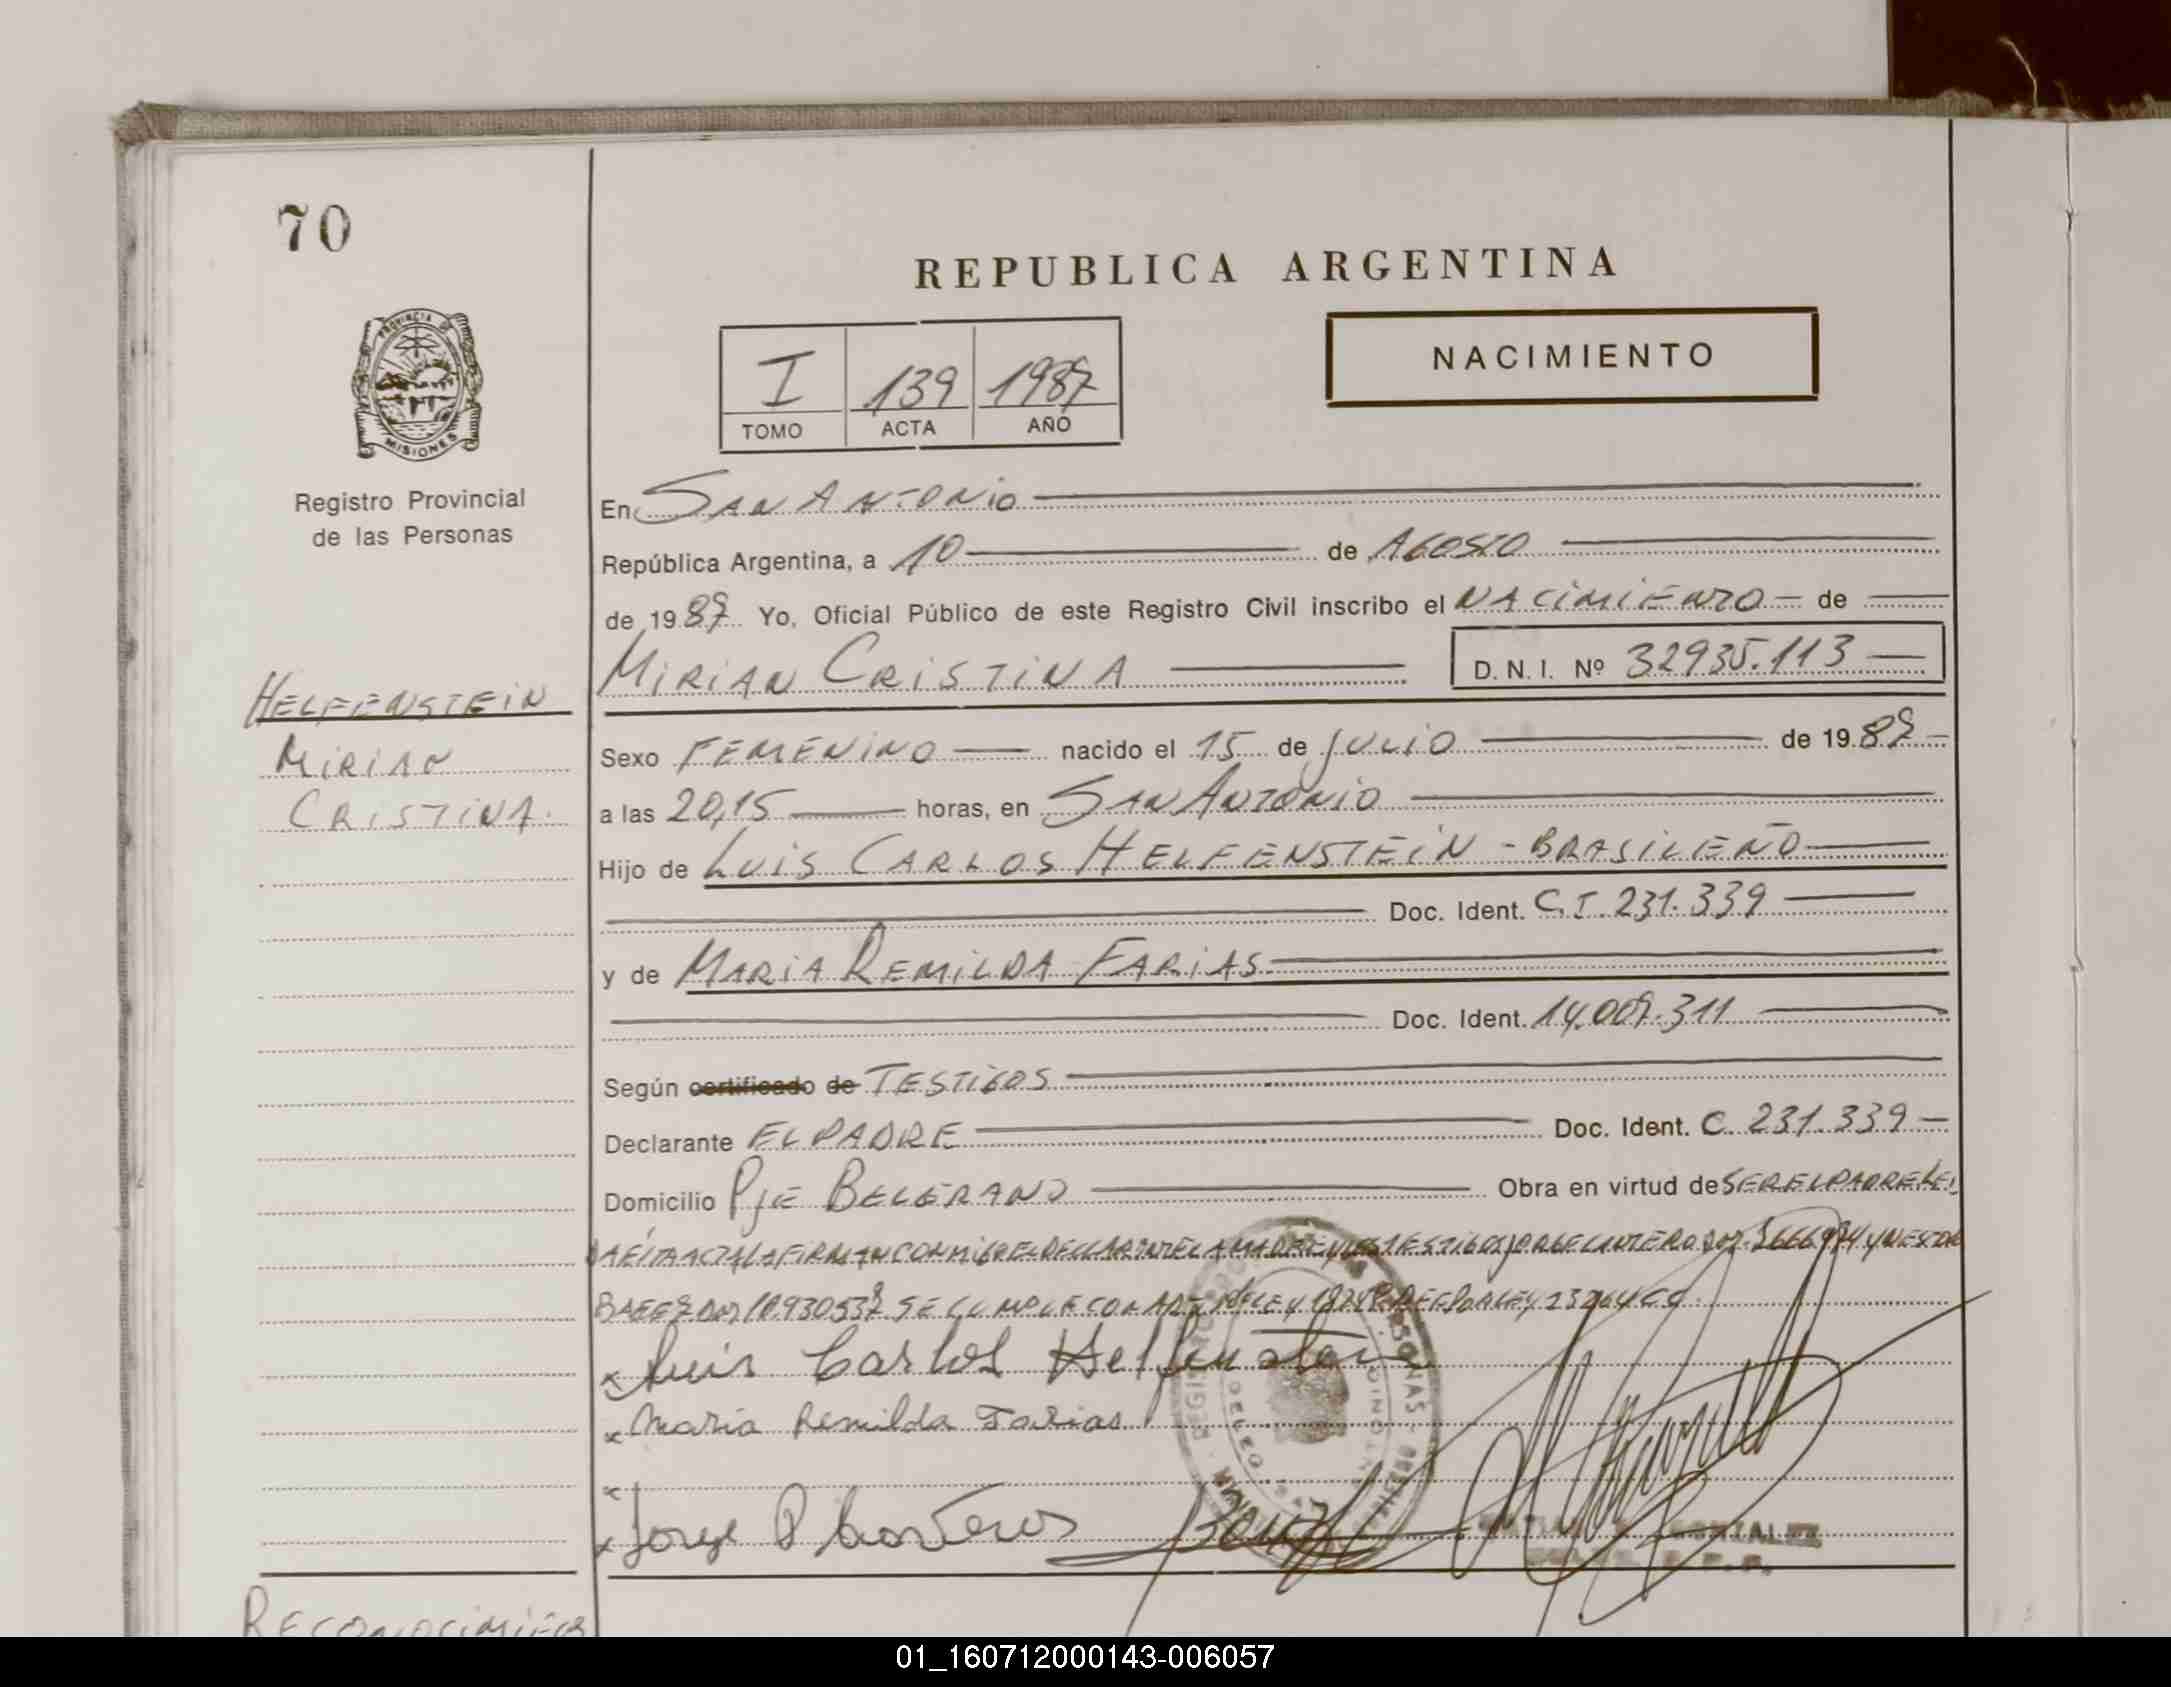 70
REPUBLICA ARGENTINA
NACIMIENTO
I 139 1987
TOMO ACTA AÑO
PROVINCIA DE
MISIONES
Registro Provincial
de las Personas
En SAN ANTONIO
República Argentina, a 10 de AGOSTO
de 1987 Yo, Oficial Público de este Registro Civil inscribo el NACIMIENTO de
MIRIAN CRISTINA D.N.I. Nº 32935.113
HELFENSTEIN
MIRIAN
CRISTINA.
Sexo FEMENINO nacido el 15 de JULIO de 1987
a las 20,15 horas, en SAN ANTONIO
Hijo de LUIS CARLOS HELFENSTEIN - BRASILEÑO
Doc. Ident. C.I. 231.339
y de MARIA REMILDA FARIAS
Doc. Ident. 14.009.311
Según certificado de TESTIGOS
Declarante EL PADRE Doc. Ident. C. 231.339
Domicilio PJE BELGRANO Obra en virtud de SER EL PADRE LEI
DA EL ACTA LA FIRMAN CONMIGO EL DECLARANTE LA MADRE Y LOS TESTIGOS JORGE Y NESTOR
BAEZ 10.930537 SE CUMPLE CON ART LEY POR LEY 23264
Luis Carlos Helfenstein
Maria Remilda Farias
Jorge
GONZALEZ
RECONOCIMIENTO
01_160712000143-006057